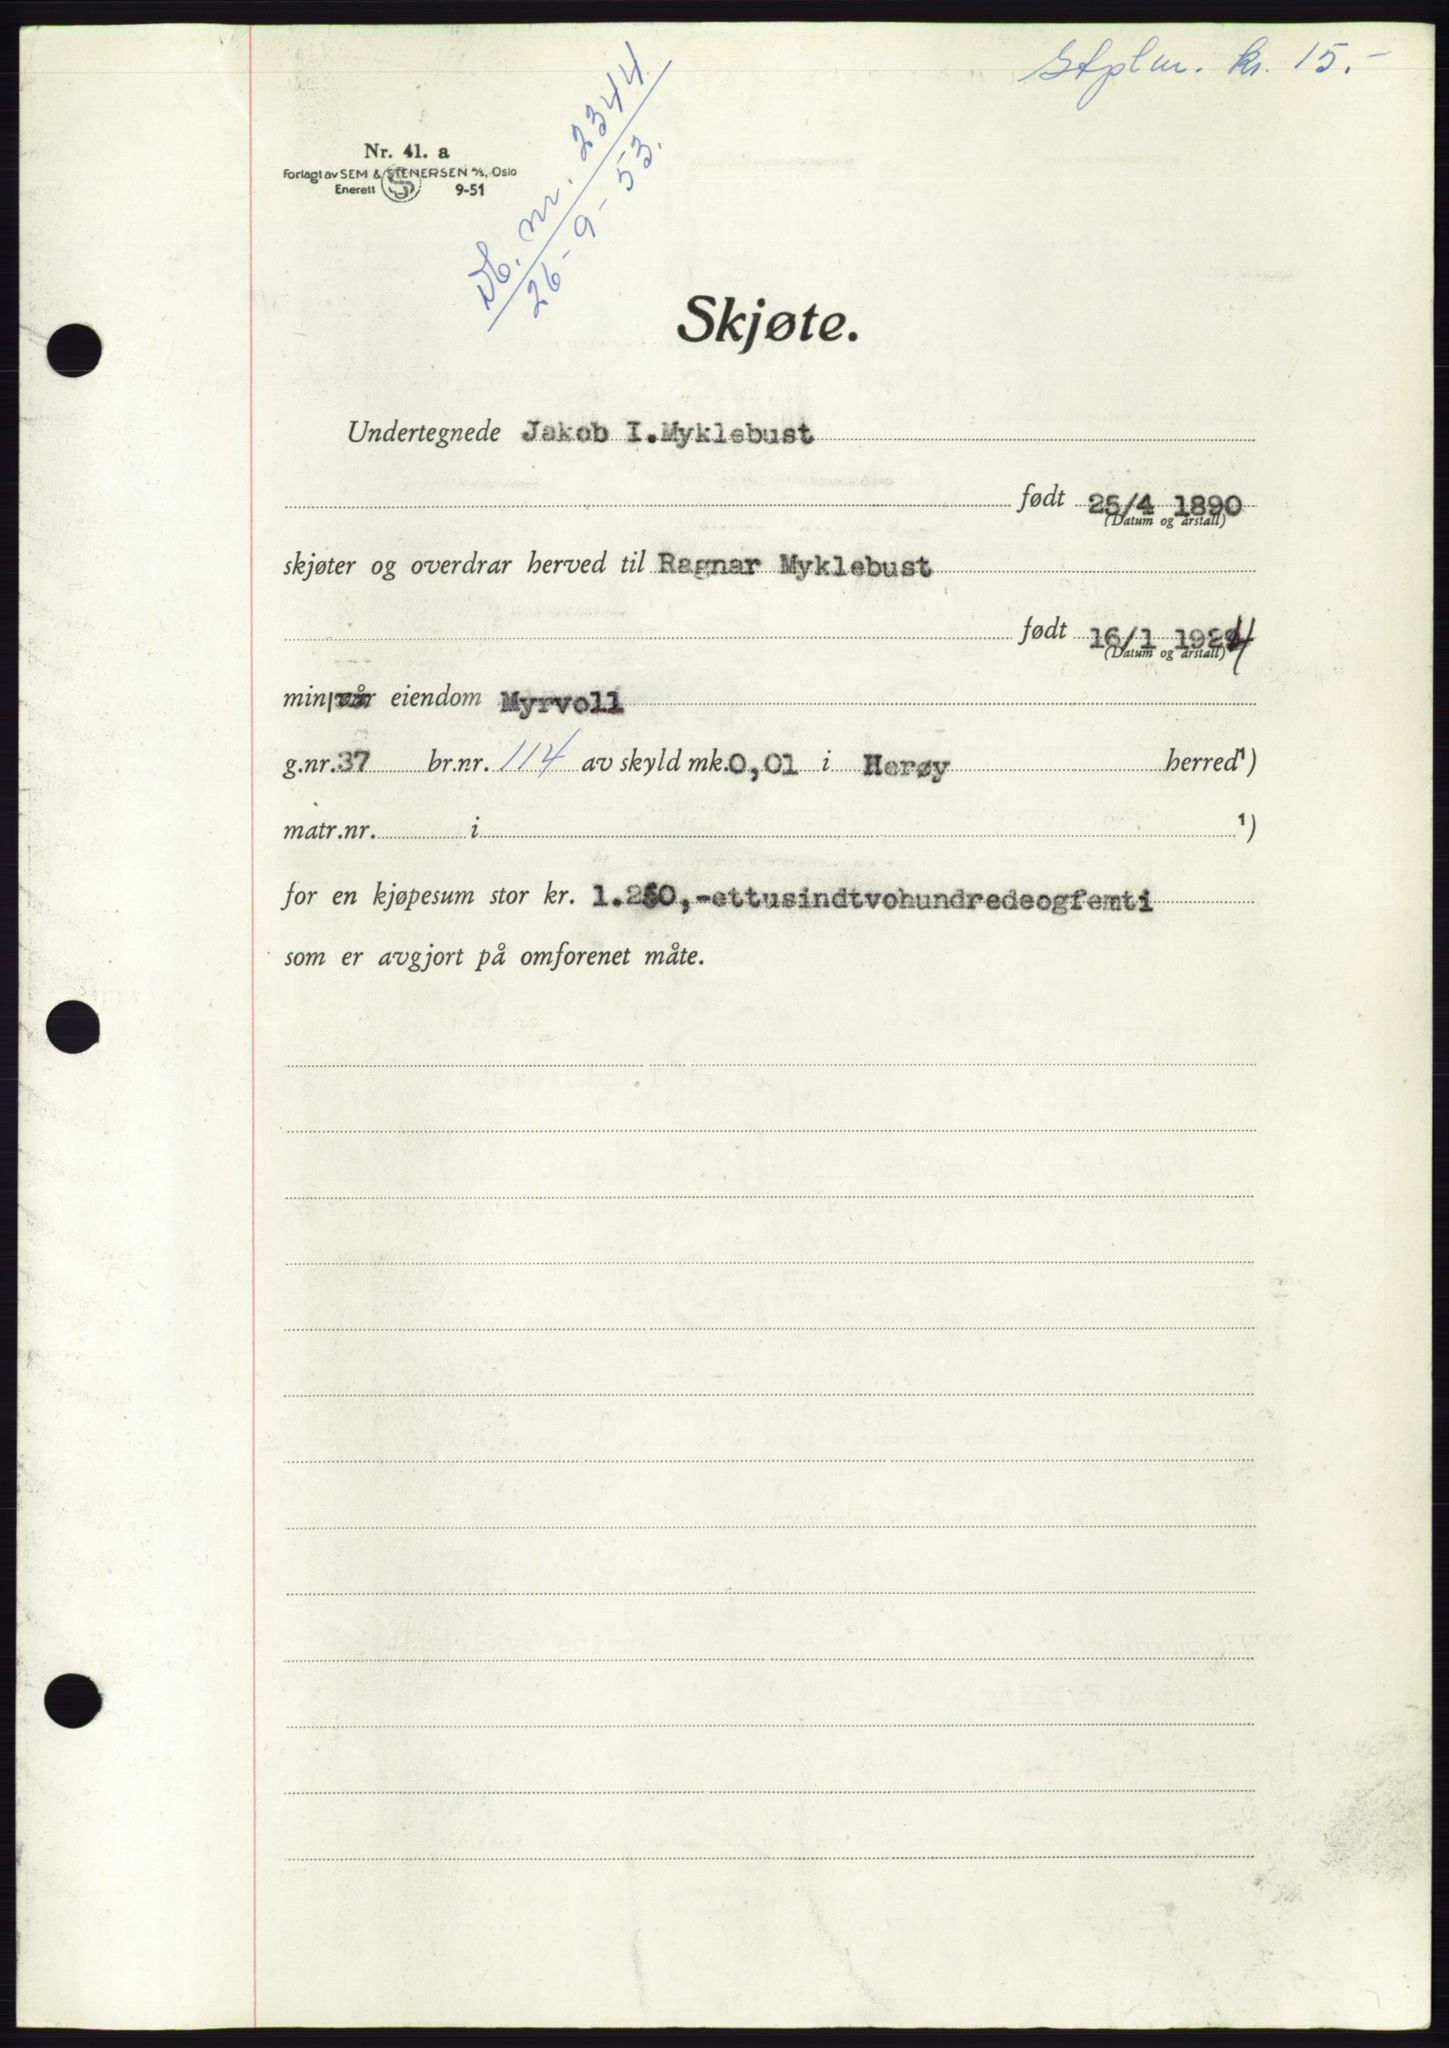 Stplm. kr. 15.-
Nr. 41. a
Forlagt av SEM & STENERSEN A/S, Oslo
Enerett S 9-51
Db. nr. 2344
26-9-53.
Skjøte.
Undertegnede Jakob I.Myklebust
født 25/4 1890
(Datum og årstall)
skjøter og overdrar herved til Ragnar Myklebust
født 16/1 1924
(Datum og årstall)
min/vår eiendom Myrvoll
g.nr. 37 br.nr. 114 av skyld mk. 0,01 i Herøy herred ¹)
matr.nr. i ¹)
for en kjøpesum stor kr. 1.250,-ettusindtvohundredeogfemti
som er avgjort på omforenet måte.